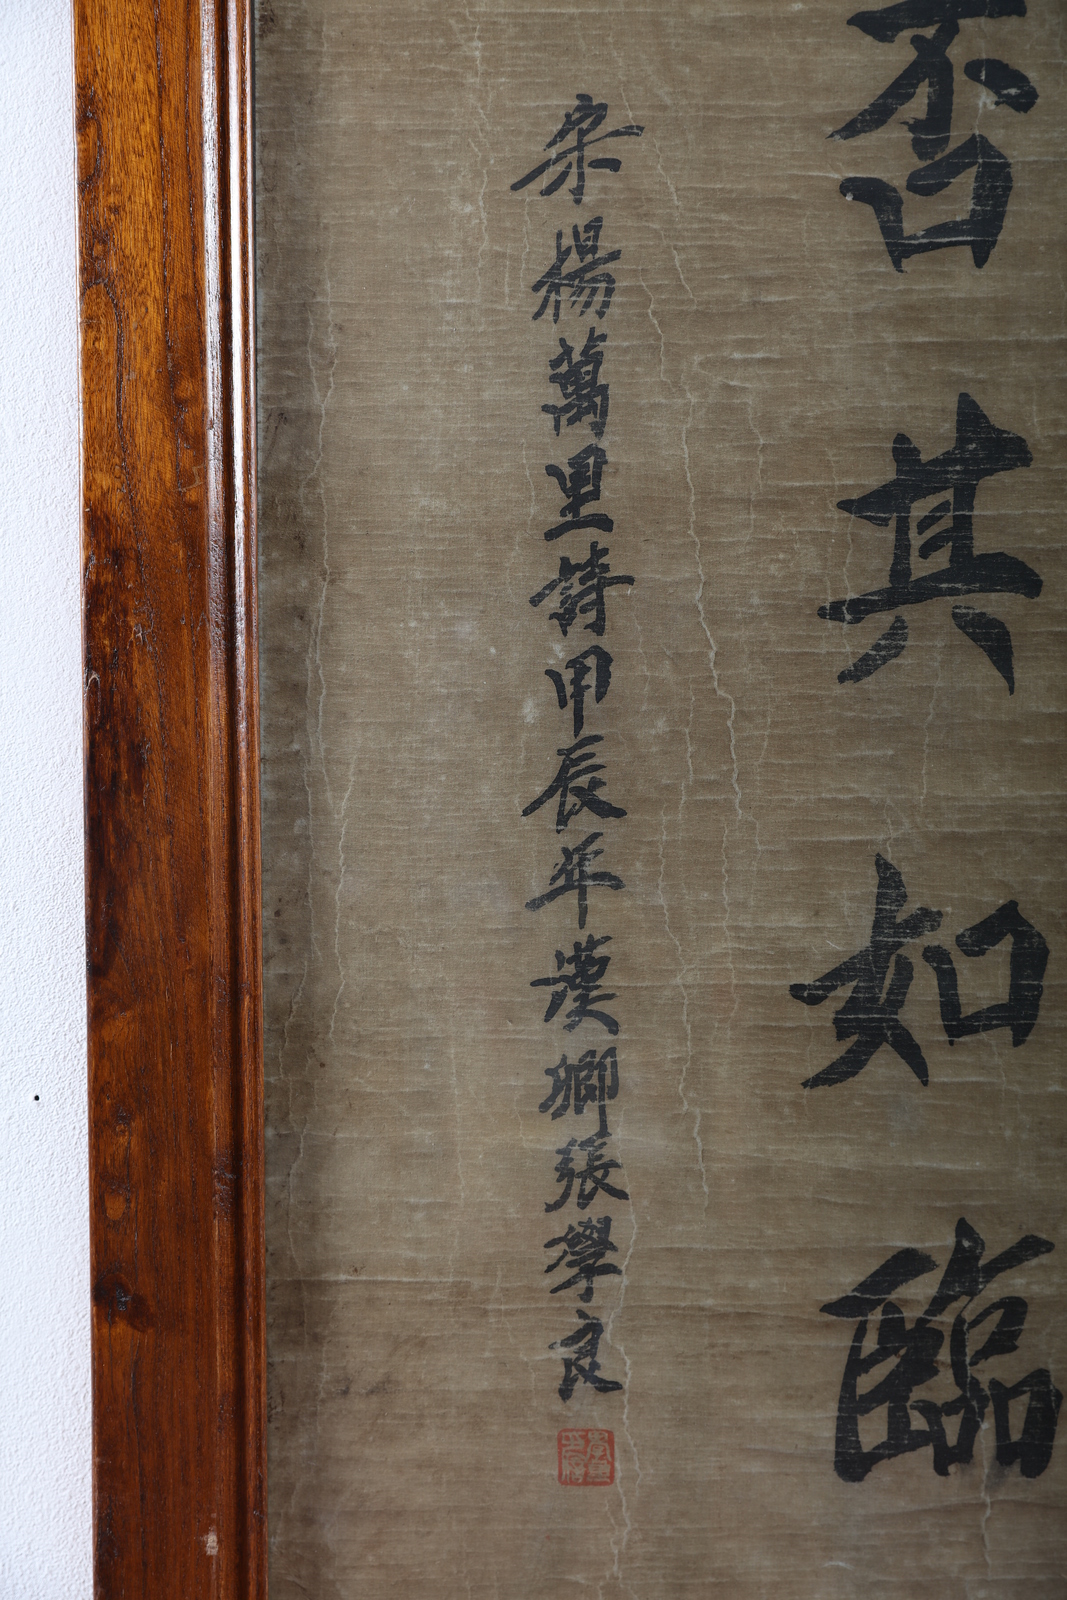 否其如臨
宋楊萬里詩甲辰年漢卿張學良